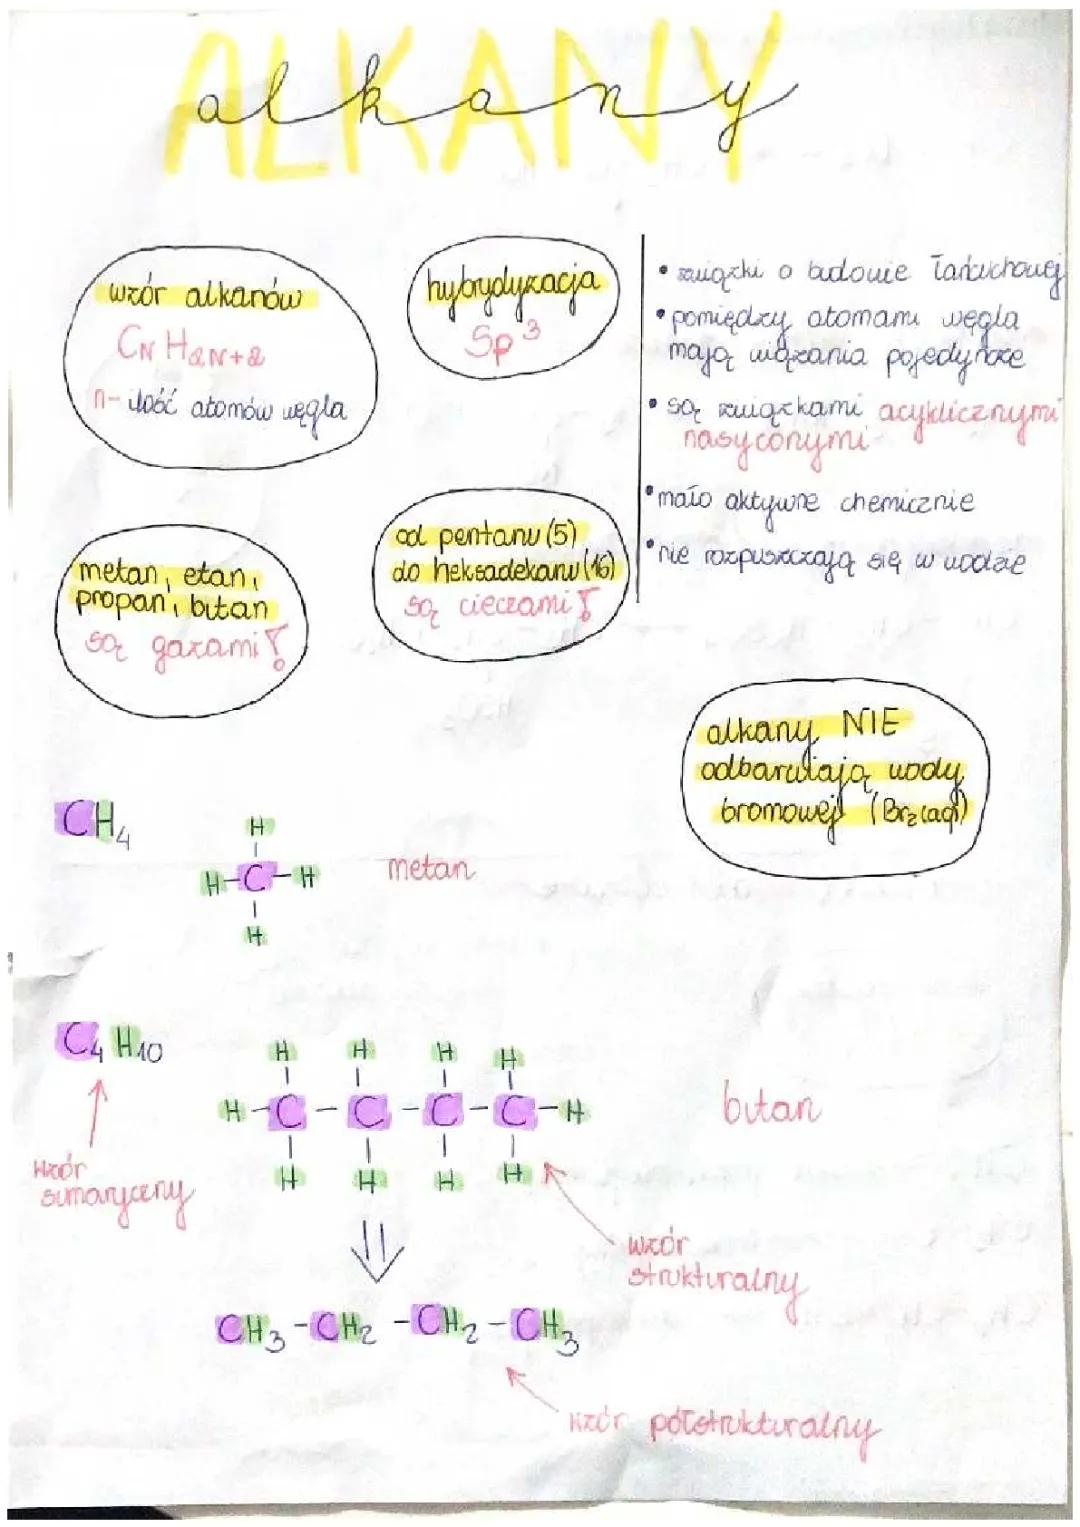 ALKANY
alkany
wzór alkanów
CN H2N+2
n- ilość atomów węgla
hybrydyzacja
Sp3
• związki o budowie łańcuchowej
• pomiędzy atomami węgla
mają wiązania pojedyncze
• są związkami acyklicznymi
nasyconymi
• mało aktywne chemicznie
• nie rozpuszczają się w wodzie
metan, etan,
propan, butan
są gazami!
od pentanu (5)
do heksadekanu (16)
są cieczami!
alkany NIE
odbarwiają wody
bromowej (Br2(aq))
CH4
H
H-C-H
H
metan
C4H10
H H H H
H-C-C-C-C-H
H H H H
butan
wzór
sumaryczny
wzór
strukturalny
CH3-CH2-CH2-CH3
wzór półstrukturalny